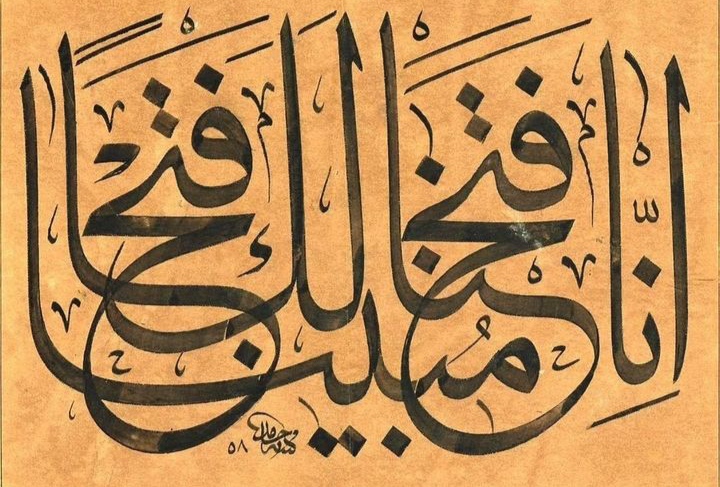 إِنَّا فَتَحْنَا لَكَ فَتْحًا مُبِينًا
كتبه حامد ٥٨